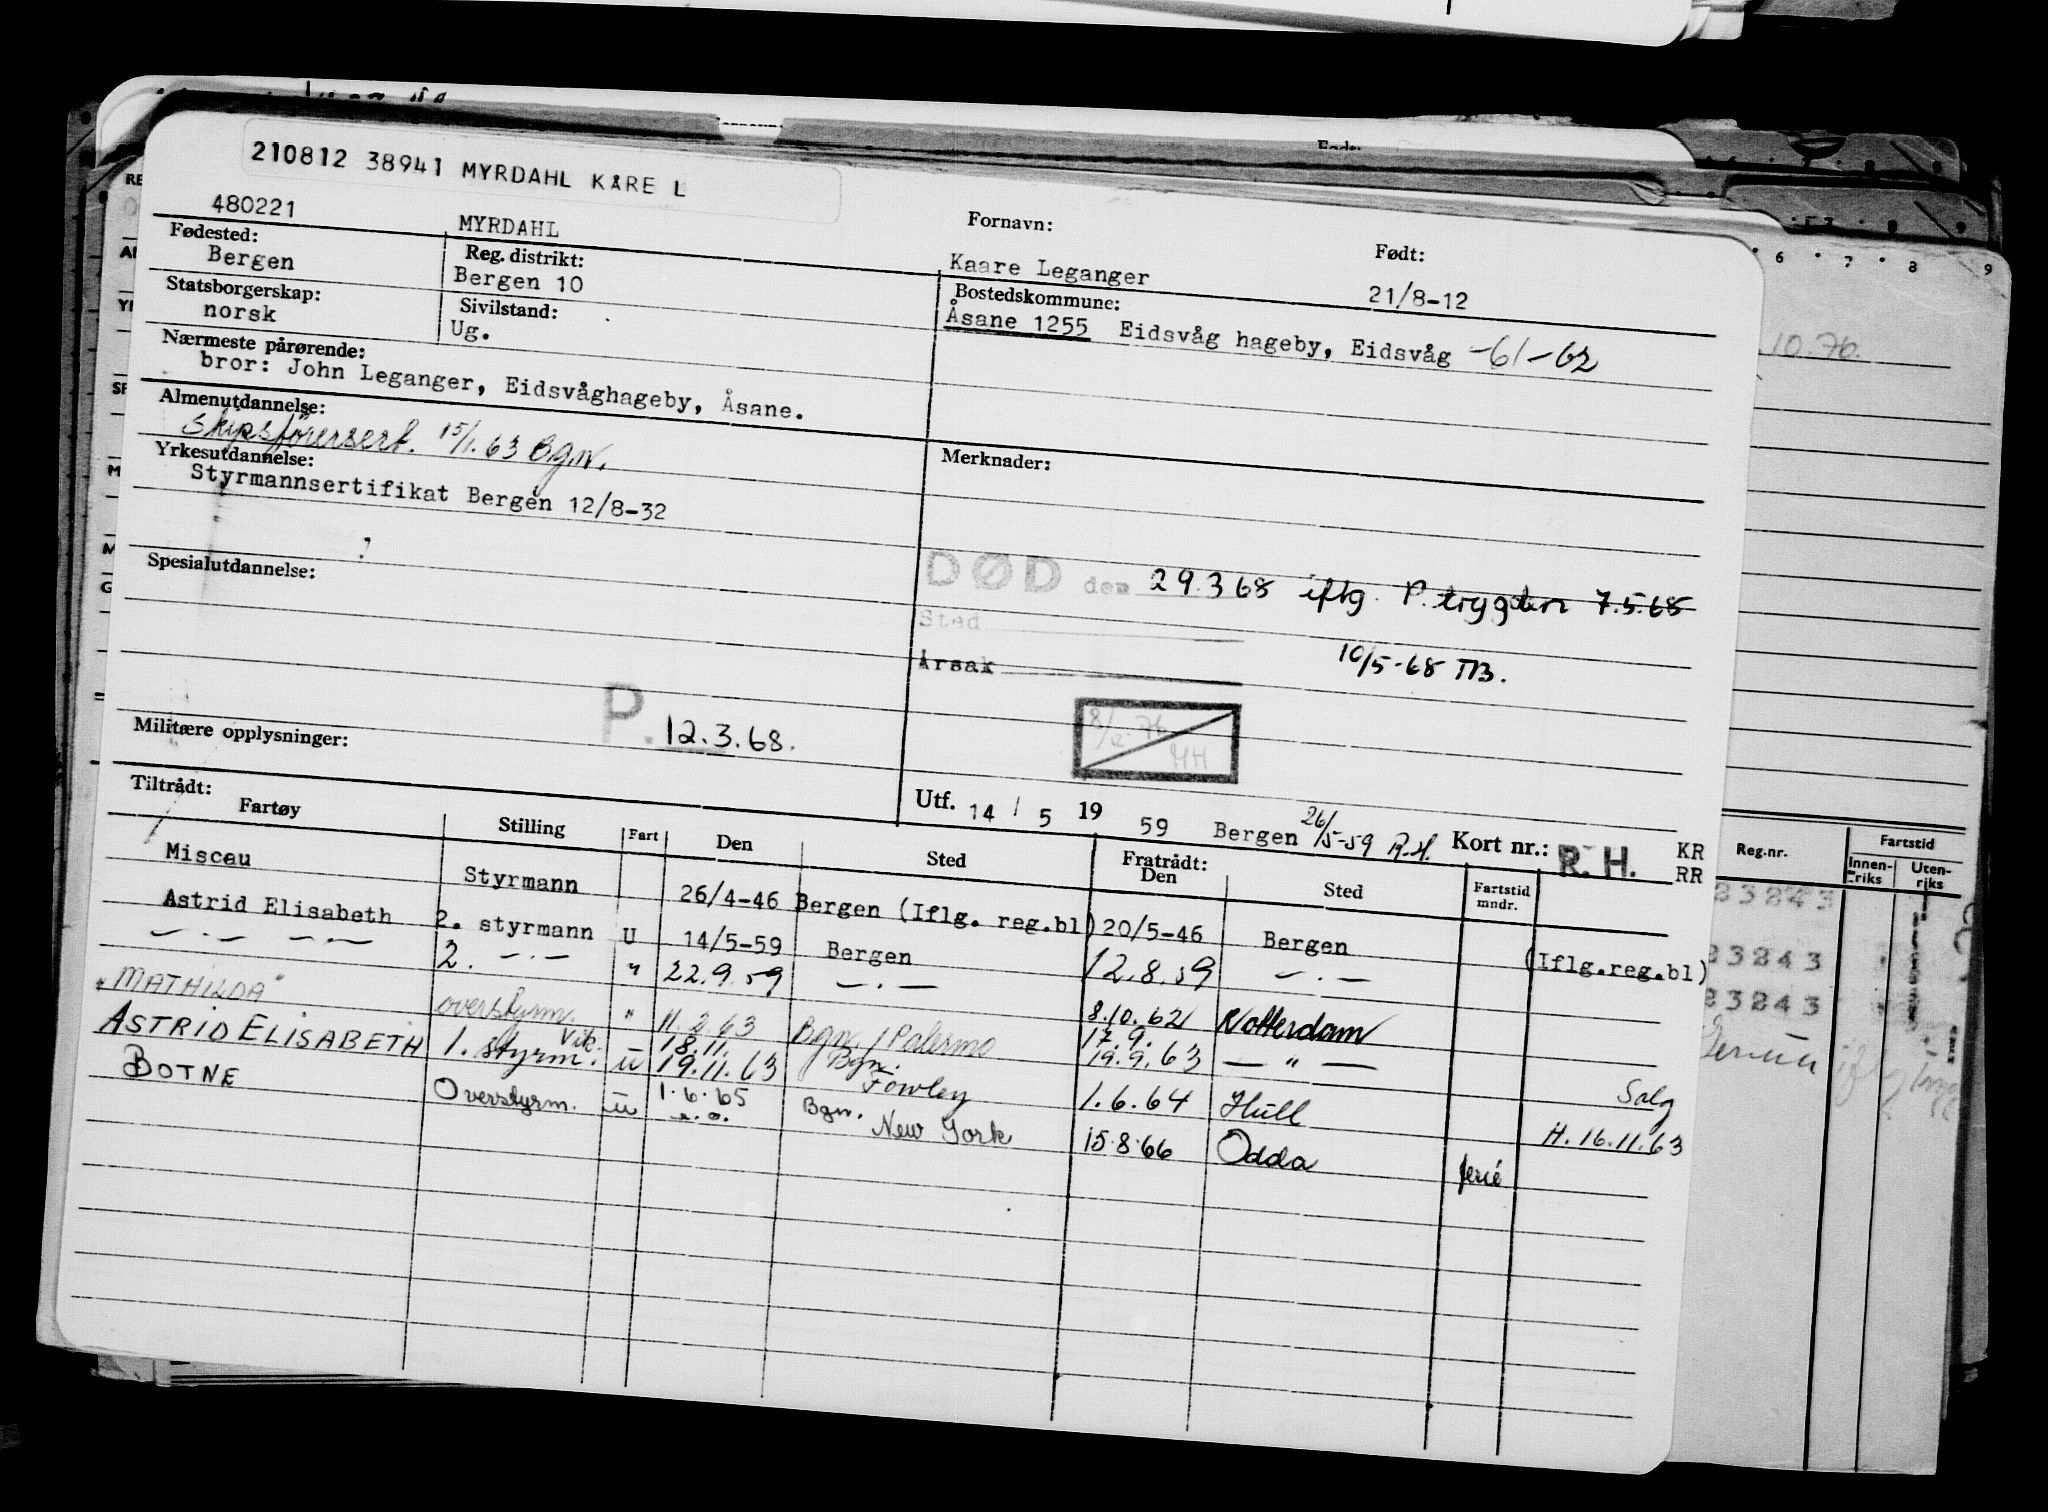 210812 38941 MYRDAHL KÅRE L
480221 MYRDAHL Fornavn: Kaare Leganger Født: 21/8-12
Fødested: Bergen Reg. distrikt: Bergen 10 Bostedskommune: Åsane 1255 Eidsvåg hageby, Eidsvåg -61-62
Statsborgerskap: norsk Sivilstand: Ug.
Nærmeste pårørende:
bror: John Leganger, Eidsvåghageby, Åsane.
Almenutdannelse:
Skipsførersert. 15/1.63 Bgn.
Yrkesutdannelse:
Styrmannsertifikat Bergen 12/8-32
Merknader:
DØD den 29.3 68 iflg. P. trygden 7.5.68
Sted
Årsak
10/5-68 TB.
Spesialutdannelse:
P. 12.3.68.
8/12-76
HH
Militære opplysninger:
Utf. 14 / 5 19 59 Bergen 26/5-59 R.H. Kort nr.: R. H. KR
RR
Tiltrådt: Fratrådt:
Fartøy Stilling Fart Den Sted Den Sted Fartstid mndr.
Miscau Styrmann 26/4-46 Bergen (Iflg. reg.bl) 20/5-46 Bergen (Iflg.reg.bl)
Astrid Elisabeth 2. styrmann U 14/5-59 Bergen 12.8.59 —.—
—.— —.— 2. —.— " 22.9.59 —.— 8.10.62 Rotterdam
"MATHILDA" overstyrm. " 11.2.63 Bgn. / Palermo 17.9. 19.9.63 — " — Salg
ASTRID ELISABETH 1. styrm. vik. U 18.11. 19.11.63 Bgn. Fowley 1.6.64 Hull H. 16.11.63
BOTNE Overstyrm. U 1.6.65 Bgn. New York 15.8.66 Odda ferié
10.76.
6 7 8 9
Reg.nr. Fartstid
Innen-riks Uten-riks
23243
23243
23243